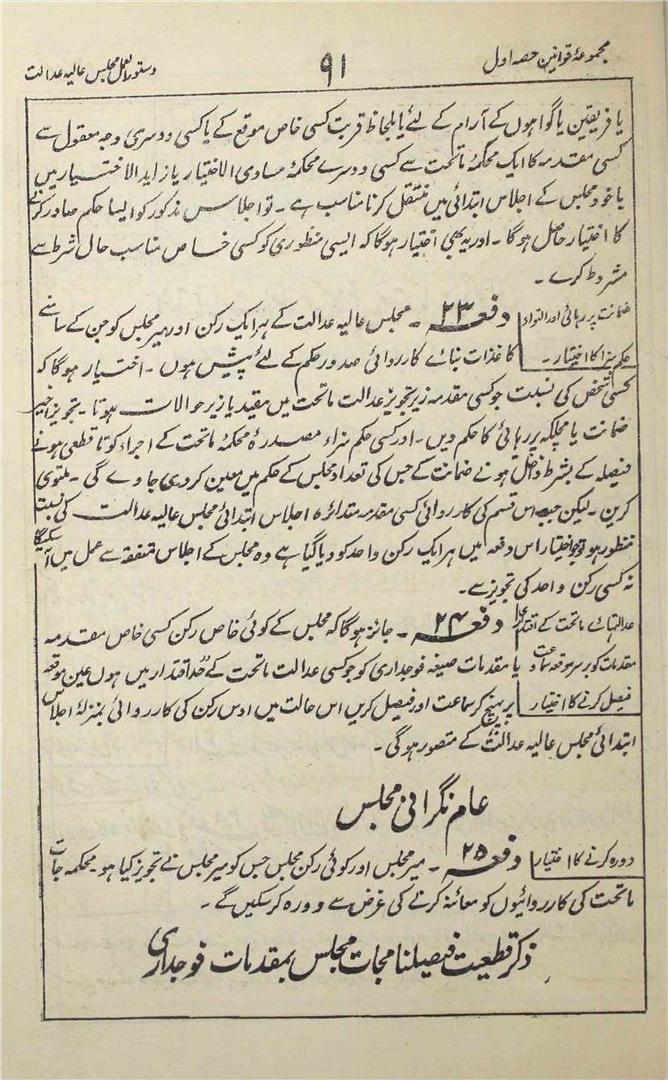 مجموعۂ قوانین حصہ اول
۹۱
دستور العمل مجلس عالیہ عدالت
یا فریقین یا گواہوں کے آرام کے لئے یا بلحاظ قربت کسی خاص موقع کے یا کسی دوسری وجہ معقول سے
کسی مقدمہ کا ایک محکمۂ ماتحت سے کسی دوسرے محکمۂ مساوی الاختیار یا زاید الاختیار میں
یا خود مجلس کے اجلاس ابتدائی میں منتقل کرنا مناسب ہے ۔ تو اجلاس مذکور کو ایسا حکم صادر کرنے
کا اختیار حاصل ہوگا ۔ اور یہ بھی اختیار ہوگا کہ ایسی منظوری کو کسی خاص مناسب حال شرط سے
مشروط کرے ۔
ضمانت پر رہائی اور التواء
حکم سزا کا اختیار ۔
دفعہ ۲۳ ۔ مجلس عالیہ عدالت کے ہر ایک رکن اور میر مجلس کو جن کے سامنے
کاغذات بناے کارروائی صدور حکم کے لئے پیش ہوں ۔ اختیار ہوگا کہ
کسی شخص کی نسبت جو کسی مقدمہ زیر تجویز عدالت ماتحت میں مقید یا زیر حوالات ہو تا ۔ تجویز اخیر
ضمانت یا مچلکہ پر رہائی کا حکم دیں ۔ اور کسی حکم سزاء مصدرۂ محکمۂ ماتحت کے اجراء کو تا قطعی ہونے
فیصلہ کے بشرط داخل ہونے ضمانت کے جس کی تعداد مجلس کے حکم میں معین کردی جاوے گی ۔ ملتوی
کریں ۔ لیکن جب اس قسم کی کارروائی کسی مقدمہ متدائرہ اجلاس ابتدائی مجلس عالیہ عدالت کی نسبت
منظور ہو تو جو اختیار اس دفعہ میں ہر ایک رکن واحد کو دیا گیا ہے وہ مجلس کے اجلاس متفقہ سے عمل میں آسکیگا
نہ کسی رکن واحد کی تجویز سے ۔
عدالتہائے ماتحت کے اقتداری
مقدمات کو برسر موقعہ سماعت و
فیصل کرنے کا اختیار
دفعہ ۲۴ ۔ جائز ہوگا کہ مجلس کے کوئی خاص رکن کسی خاص مقدمہ
یا مقدمات صیغہ فوجداری کو جو کسی عدالت ماتحت کے حد اقتدار میں ہوں عین موقعہ
پر پہنچ کر سماعت اور فیصل کریں اس حالت میں اوس رکن کی کارروائی بمنزلۂ اجلاس
ابتدائی مجلس عالیہ عدالت کے متصور ہوگی ۔
عام نگرانی مجلس
دورہ کرنے کا اختیار
دفعہ ۲۵ ۔ میر مجلس اور کوئی رکن مجلس جس کو میر مجلس نے تجویز کیا ہو ۔ محکمہ جات
ماتحت کی کارروائیوں کو معائنہ کرنے کی غرض سے دورہ کر سکیں گے ۔
ذکر قطعیت فیصلنامجات مجلس بمقدمات فوجداری